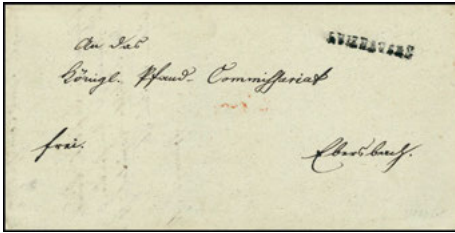 An das
Königl. Pfand-Commissariat
frei. Ebersbach.